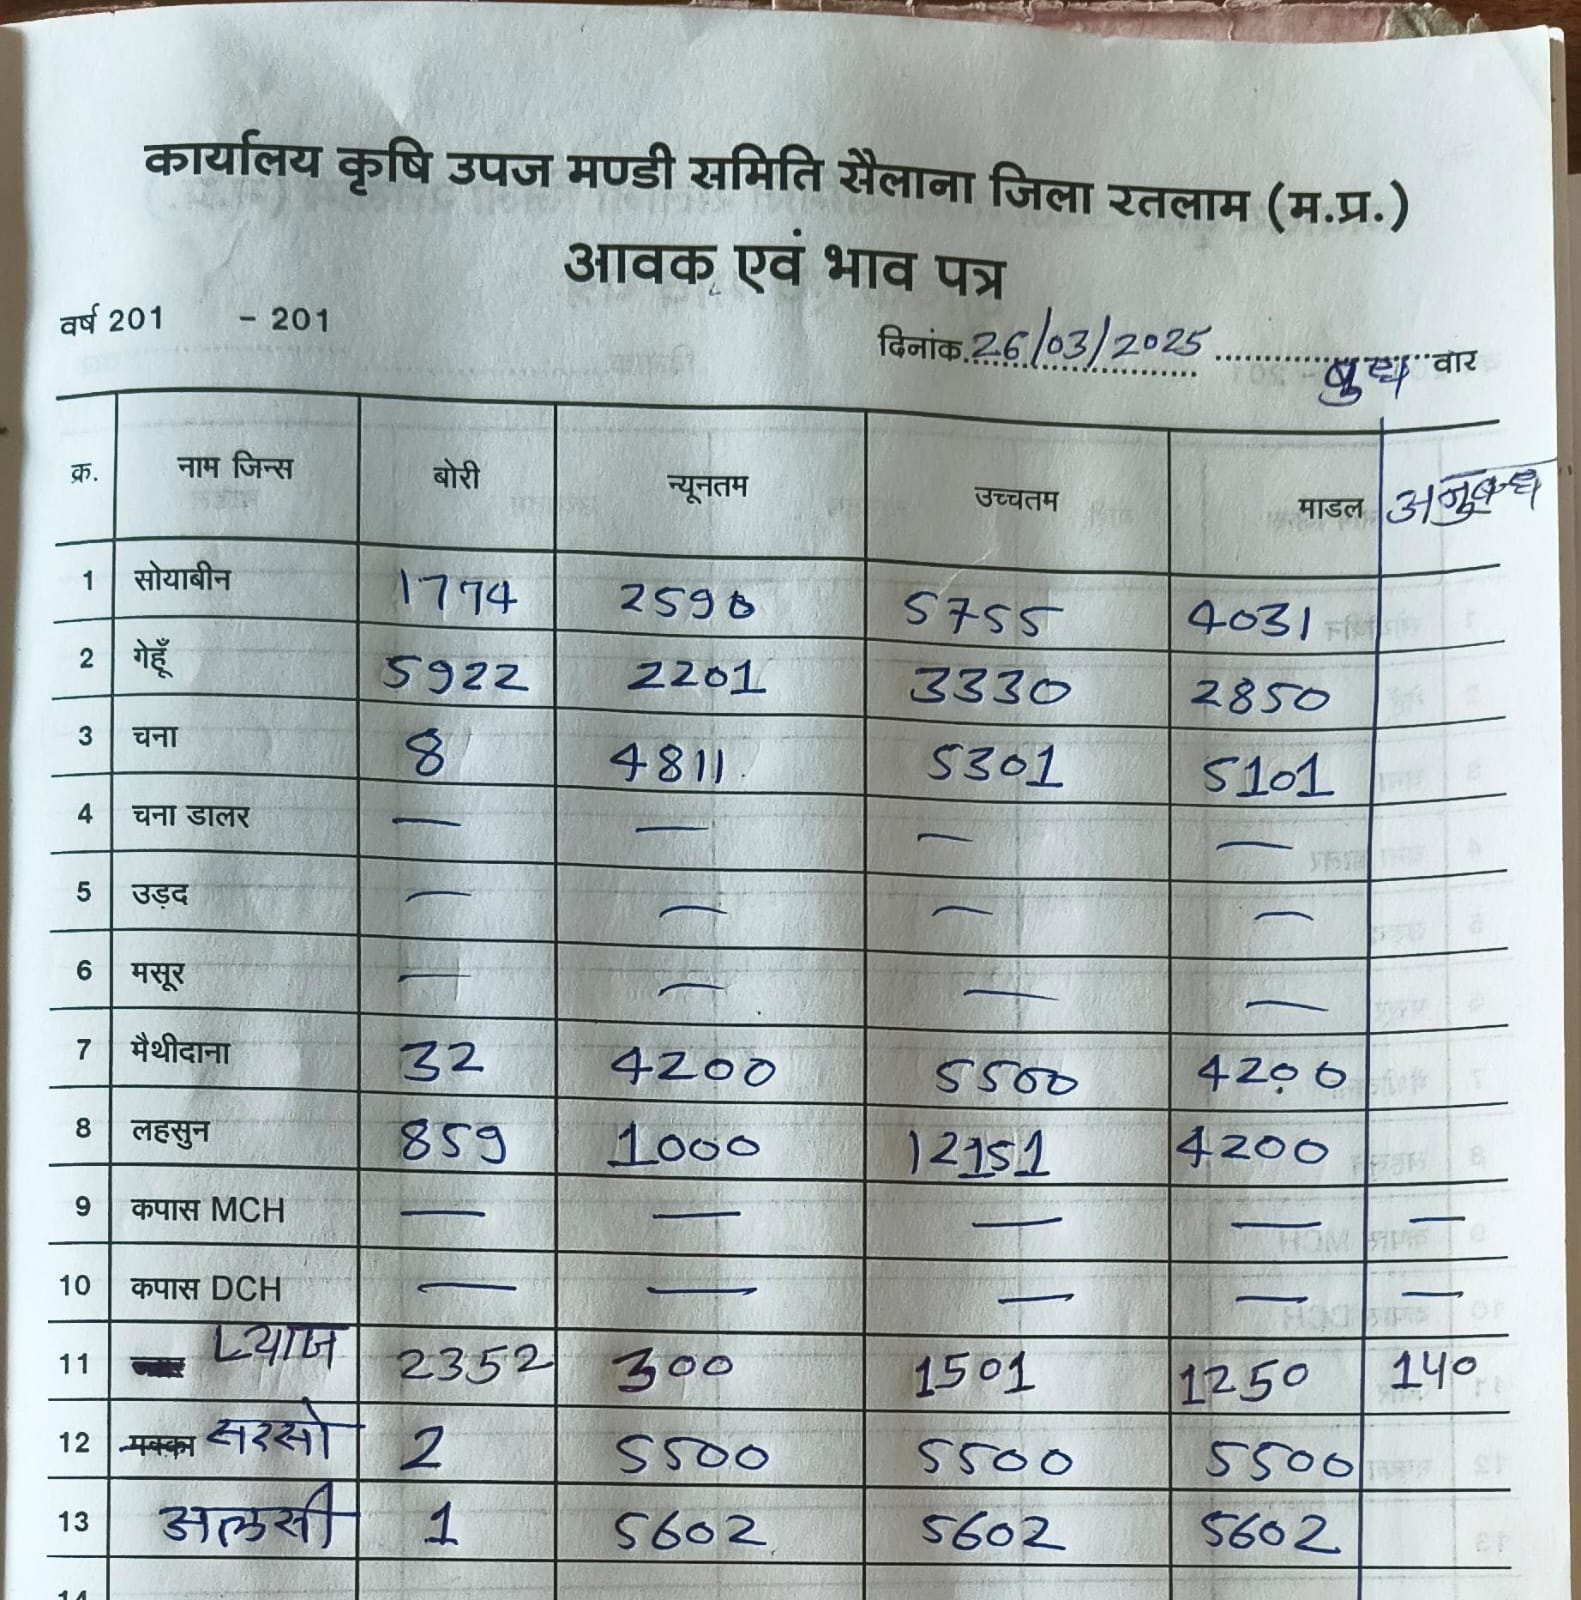 कार्यालय कृषि उपज मण्डी समिति सैलाना जिला रतलाम (म.प्र.)
आवक एवं भाव पत्र
वर्ष 201 - 201 दिनांक 26/03/2025 बुध वार
क्र. नाम जिन्स बोरी न्यूनतम उच्चतम माडल अनुबन्ध
1 सोयाबीन 1774 2590 5755 4031
2 गेहूँ 5922 2201 3330 2850
3 चना 8 4811 5301 5101
4 चना डालर — — — —
5 उड़द — — — —
6 मसूर — — — —
7 मैथीदाना 32 4200 5500 4200
8 लहसुन 859 1000 12151 4200
9 कपास MCH — — — — —
10 कपास DCH — — — — —
11 प्याज 2352 300 1501 1250 140
12 मक्का सरसो 2 5500 5500 5500
13 अलसी 1 5602 5602 5602